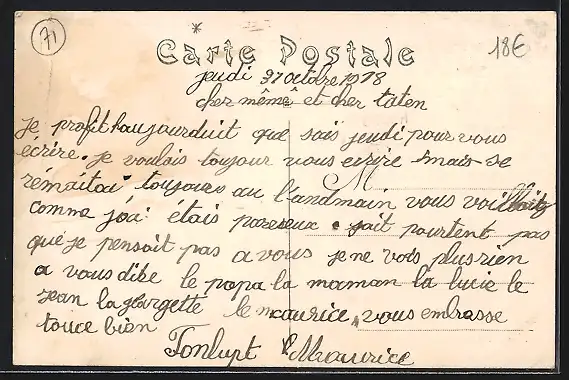 71
18€
Carte Postale
jeudi 31 octobre 1918
cher mémê et cher taten
je profit haujourduit que sois jeudi pour vous
écrire. je voulais toujour vous ecrire mais se
M
rémaitai toujours au l'andmain vous
comme jéai étais paresseux . sait pourtent pas
que je pensait pas a vous je ne vois plus rien
a vous dire le papa la maman la lucie le
jean la gorgette le maurice, vous embrasse
touce bien
Tonlupt Maurice